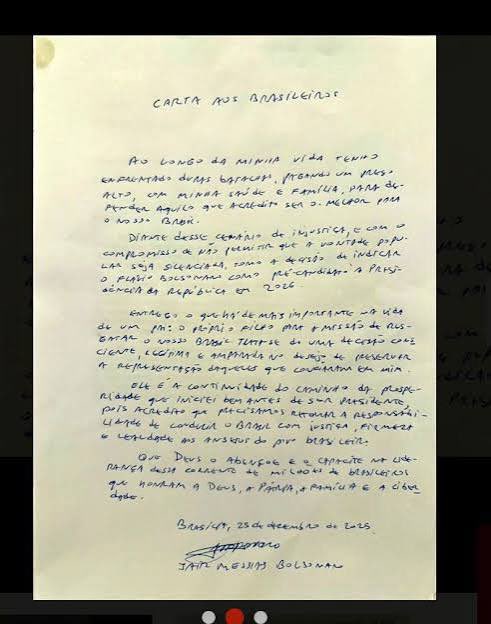 CARTA AOS BRASILEIROS
AO LONGO DA MINHA VIDA TENHO
ENFRENTADO DURAS BATALHAS, PAGANDO UM PREÇO
ALTO, COM MINHA SAÚDE E FAMÍLIA, PARA DE-
FENDER AQUILO QUE ACREDITO SER O MELHOR PARA
O NOSSO BRASIL.
DIANTE DESSE CENÁRIO DE INJUSTIÇA, E COM O
COMPROMISSO DE NÃO PERMITIR QUE A VONTADE POPU-
LAR SEJA SILENCIADA, TOMO A DECISÃO DE INDICAR
O FLÁVIO BOLSONARO COMO PRÉ-CANDIDATO A PRESI-
DÊNCIA DA REPÚBLICA EM 2026.
ENTREGO O QUE HÁ DE MAIS IMPORTANTE NA VIDA
DE UM PAI: O PRÓPRIO FILHO PARA A MISSÃO DE RES-
GATAR O NOSSO BRASIL. TRATA-SE DE UMA DECISÃO CONS-
CIENTE, LEGÍTIMA E AMPARADA NO DESEJO DE PRESERVAR
A REPRESENTAÇÃO DAQUELES QUE CONFIARAM EM MIM.
ELE É A CONTINUIDADE DO CAMINHO DA PROSPE-
RIDADE QUE INICIEI BEM ANTES DE SER PRESIDENTE,
POIS ACREDITO QUE PRECISAMOS RETOMAR A RESPONSABI-
LIDADE DE CONDUZIR O BRASIL COM JUSTIÇA, FIRMEZA
E LEALDADE AOS ANSEIOS DO POVO BRASILEIRO.
QUE DEUS O ABENÇOE E O CAPACITE NA LIDE-
RANÇA DESSA CORRENTE DE MILHÕES DE BRASILEIROS
QUE HONRAM A DEUS, A PÁTRIA, A FAMÍLIA E A LIBER-
DADE.
BRASÍLIA, 25 DE DEZEMBRO DE 2025
JAIR MESSIAS BOLSONARO